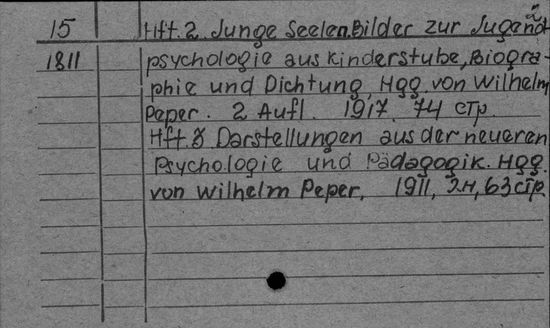 15 Hft. 2. Junge Seelen. Bilder zur Jugend-
1811 psychologie aus Kinderstube, Biogra-
phie und Dichtung, Hgg. von Wilhelm
Peper. 2 Aufl. 1917. 74 стр.
Hft. 8 Darstellungen aus der neueren
Psychologie und Pädagogik. Hgg.
von Wilhelm Peper, 1911, 2н, 63 стр.